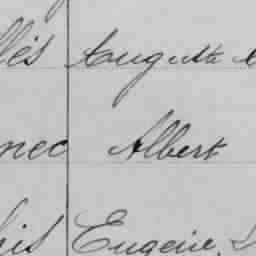 lès Auguste
nec Albert
his Eugène